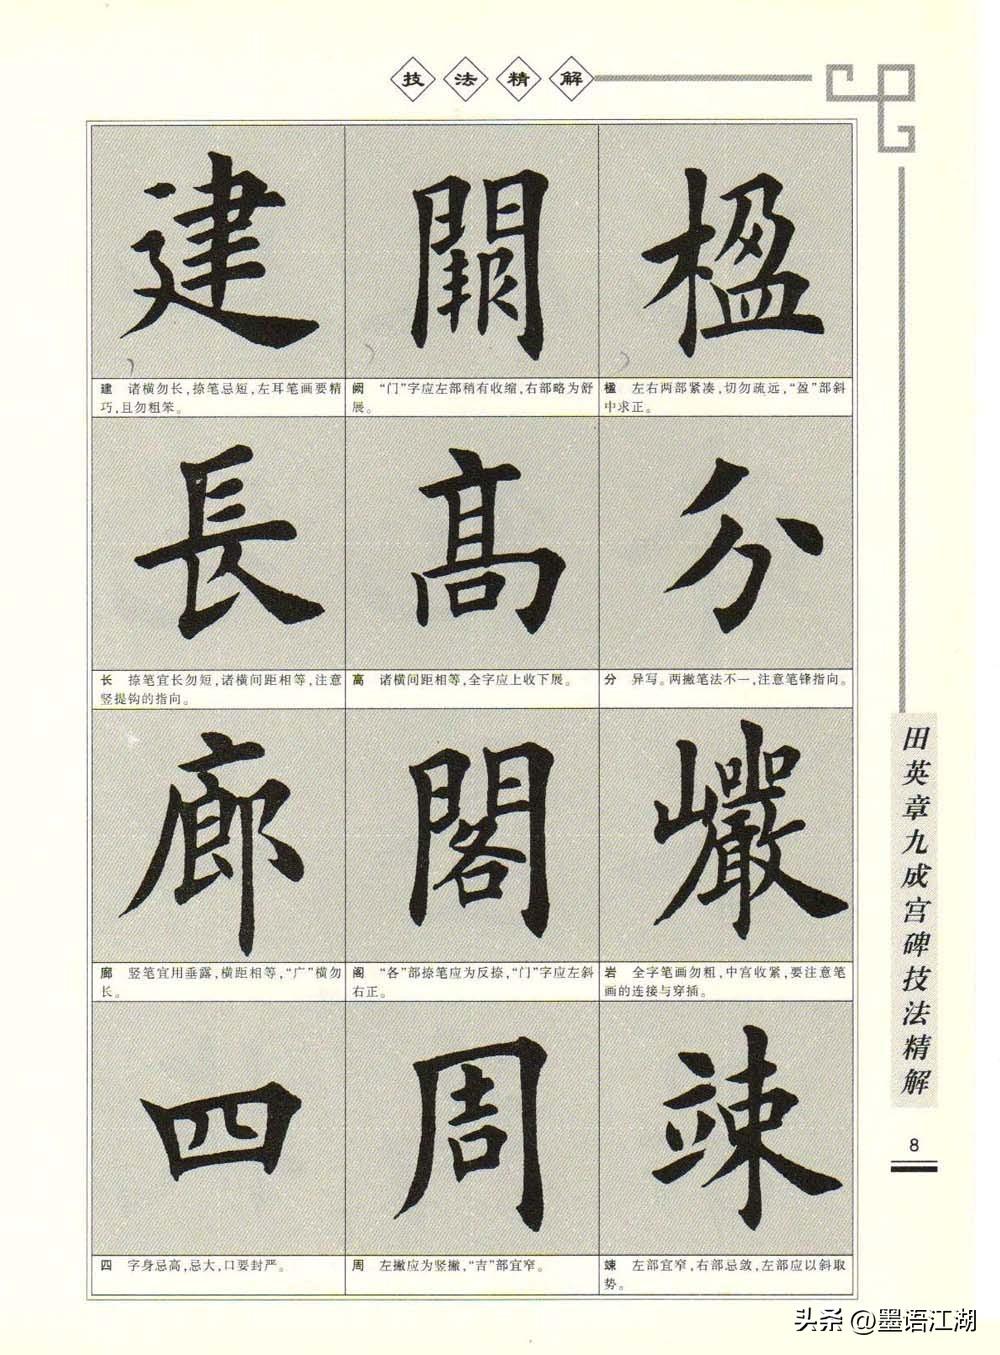 技法精解
建
闕
楹
建 诸横勿长，捺笔忌短，左耳笔画要精
巧，且勿粗笨。
阙 “门”字应左部稍有收缩，右部略为舒
展。
楹 左右两部紧凑，切勿疏远，“盈”部斜
中求正。
長
高
分
长 捺笔宜长勿短，诸横间距相等，注意
竖提钩的指向。
高 诸横间距相等，全字应上收下展。
分 异写。两撇笔法不一，注意笔锋指向。
廊
閣
巖
廊 竖笔宜用垂露，横距相等，“广”横勿
长。
阁 “各”部捺笔应为反捺，“门”字应左斜
右正。
岩 全字笔画勿粗，中宫收紧，要注意笔
画的连接与穿插。
四
周
竦
四 字身忌高，忌大，口要封严。
周 左撇应为竖撇，“吉”部宜窄。
竦 左部宜窄，右部忌敛，左部应以斜取
势。
田英章九成宫碑技法精解
8
头条 @墨语江湖